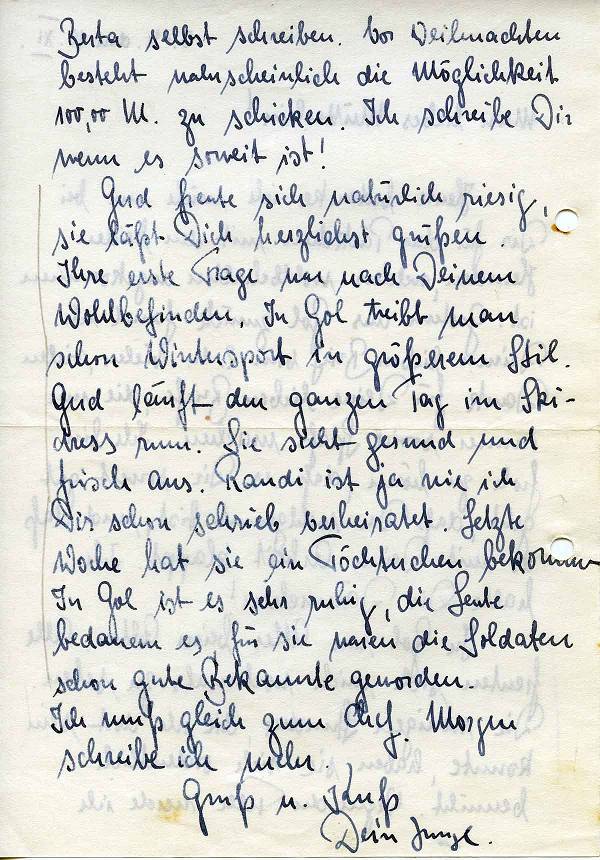 Berta selbst schreiben. Vor Weihnachten
besteht wahrscheinlich die Möglichkeit
100,00 M. zu schicken. Ich schreibe Dir
wenn es soweit ist!
Gud freute sich natürlich riesig,
sie läßt Dich herzlichst grüßen.
Ihre erste Frage war nach Deinem
Wohlbefinden. In Gol treibt man
schon Wintersport in größerem Stil.
Gud läuft den ganzen Tag im Ski-
dress rum. Sie sieht gesund und
frisch aus. Randi ist ja wie ich
Dir schon schrieb verheiratet. Letzte
Woche hat sie ein Töchterchen bekommen
In Gol ist es sehr ruhig, die Leute
bedauern es für sie waren die Soldaten
schon gute Bekannte geworden.
Ich muß gleich zum Chef. Morgen
schreibe ich mehr.
Gruß u. Kuß
Dein Junge.